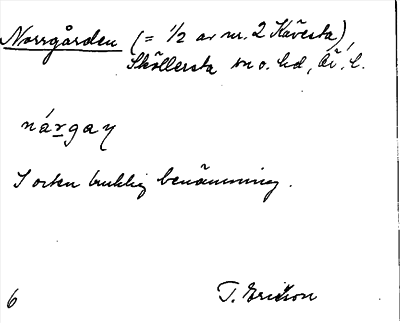 Norrgården (= 1/2 av nr. 2 Kävesta),
Sköllersta sn o. hd, Ör. l.
nárgaɳ
I orten bruklig benämning.
6 T. Ericson